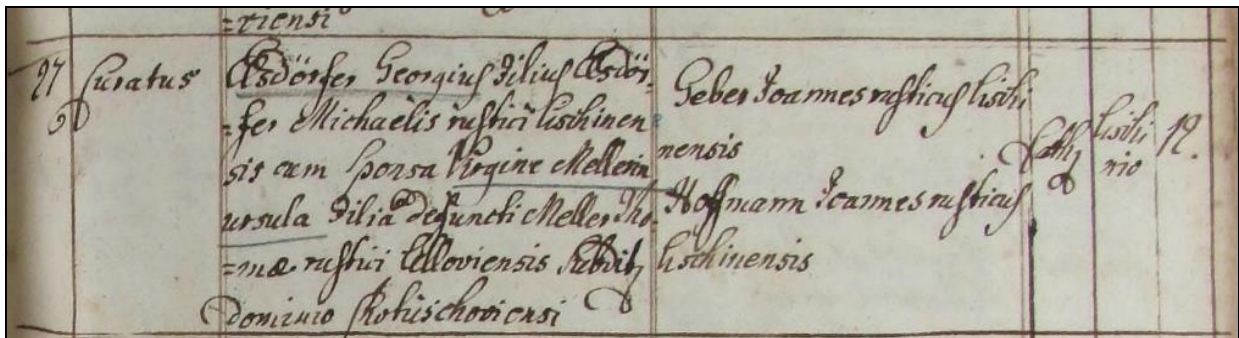 =riensi
27 Curatus Elsdörfer Georgius Filius Elsdör-
=fer Michaëlis rustici lischinen
sis cum sponsa Virgine Mellerin
ursula Filia defuncti Meller Tho-
=mæ rustici Elloviensis Subdit
dominio Chotischoviensi
Geber Joannes rusticus lischi
nensis
Hoffmann Joannes rusticus
lischinensis
Cath
lischi
nio
12.